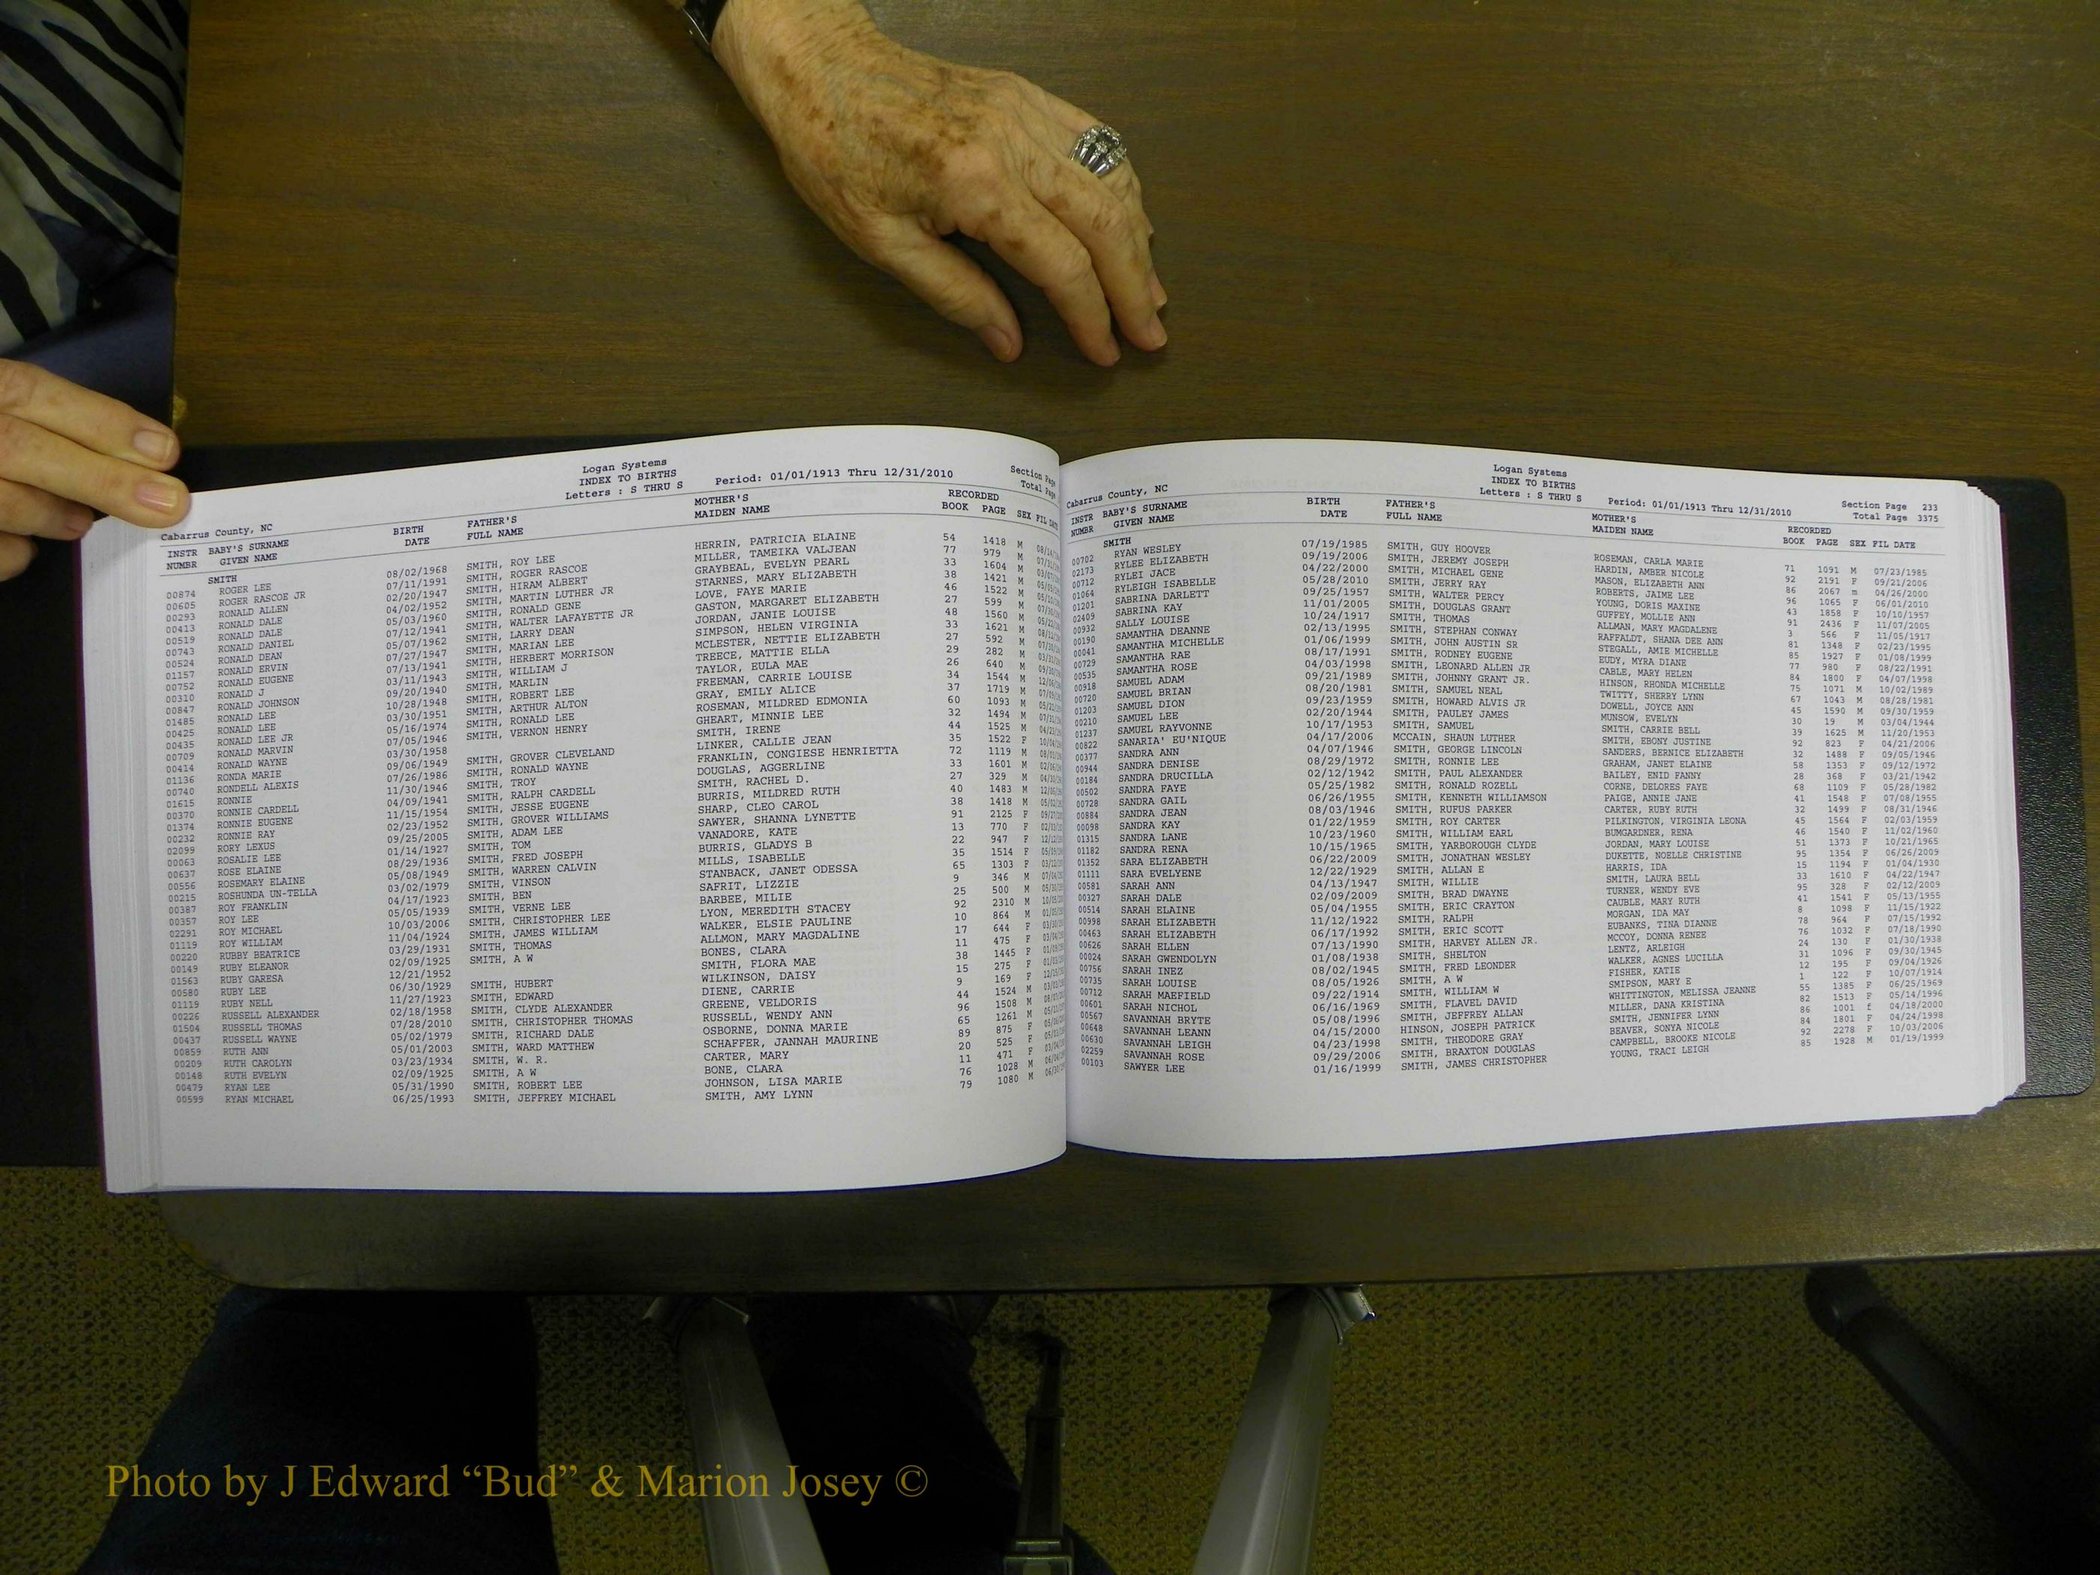 Logan Systems
INDEX TO BIRTHS
Letters : S THRU S
Cabarrus County, NC Period: 01/01/1913 Thru 12/31/2010 Section Page
Total Page
INSTR NUMBR BABY'S SURNAME GIVEN NAME BIRTH DATE FATHER'S FULL NAME MOTHER'S MAIDEN NAME RECORDED BOOK PAGE SEX FIL DATE
SMITH
00874 ROGER LEE 08/02/1968 SMITH, ROY LEE HERRIN, PATRICIA ELAINE 54 1418 M
00605 ROGER RASCOE JR 07/11/1991 SMITH, ROGER RASCOE MILLER, TAMEIKA VALJEAN 77 979 M
00293 RONALD ALLEN 02/20/1947 SMITH, HIRAM ALBERT GRAYBEAL, EVELYN PEARL 33 1604 M
00413 RONALD DALE 04/02/1952 SMITH, MARTIN LUTHER JR STARNES, MARY ELIZABETH 38 1421 M
00519 RONALD DALE 05/03/1960 SMITH, RONALD GENE LOVE, FAYE MARIE 46 1522 M
00743 RONALD DANIEL 07/12/1941 SMITH, WALTER LAFAYETTE JR GASTON, MARGARET ELIZABETH 27 599 M
00524 RONALD DEAN 05/07/1962 SMITH, LARRY DEAN JORDAN, JANIE LOUISE 48 1560 M
01157 RONALD ERVIN 07/27/1947 SMITH, MARIAN LEE SIMPSON, HELEN VIRGINIA 33 1621 M
00752 RONALD EUGENE 07/13/1941 SMITH, HERBERT MORRISON MCLESTER, NETTIE ELIZABETH 27 592 M
00310 RONALD J 03/11/1943 SMITH, WILLIAM J TREECE, MATTIE ELLA 29 282 M
00847 RONALD JOHNSON 09/20/1940 SMITH, MARLIN TAYLOR, EULA MAE 26 640 M
01485 RONALD LEE 10/28/1948 SMITH, ROBERT LEE FREEMAN, CARRIE LOUISE 34 1544 M
00425 RONALD LEE 03/30/1951 SMITH, ARTHUR ALTON GRAY, EMILY ALICE 37 1719 M
00435 RONALD LEE JR 05/16/1974 SMITH, RONALD LEE ROSEMAN, MILDRED EDMONIA 60 1093 M
00709 RONALD MARVIN 07/05/1946 SMITH, VERNON HENRY GHEART, MINNIE LEE 32 1494 M
00414 RONALD WAYNE 03/30/1958 SMITH, IRENE 44 1525 M
01136 RONDA MARIE 09/06/1949 SMITH, GROVER CLEVELAND LINKER, CALLIE JEAN 35 1522 F
00740 RONDELL ALEXIS 07/26/1986 SMITH, RONALD WAYNE FRANKLIN, CONGIESE HENRIETTA 72 1119 M
01615 RONNIE 11/30/1946 SMITH, TROY DOUGLAS, AGGERLINE 33 1601 M
00370 RONNIE CARDELL 04/09/1941 SMITH, RALPH CARDELL SMITH, RACHEL D. 27 329 M
01374 RONNIE EUGENE 11/15/1954 SMITH, JESSE EUGENE BURRIS, MILDRED RUTH 40 1483 M
00232 RONNIE RAY 02/23/1952 SMITH, GROVER WILLIAMS SHARP, CLEO CAROL 38 1418 M
02099 RORY LEXUS 09/25/2005 SMITH, ADAM LEE SAWYER, SHANNA LYNETTE 91 2125 F
00063 ROSALIE LEE 01/14/1927 SMITH, TOM VANADORE, KATE 13 770 F
00637 ROSE ELAINE 08/29/1936 SMITH, FRED JOSEPH BURRIS, GLADYS B 22 947 F
00556 ROSEMARY ELAINE 05/08/1949 SMITH, WARREN CALVIN MILLS, ISABELLE 35 1514 F
00215 ROSHUNDA UN-TELLA 03/02/1979 SMITH, VINSON STANBACK, JANET ODESSA 65 1303 F
00387 ROY FRANKLIN 04/17/1923 SMITH, BEN SAFRIT, LIZZIE 9 346 M
00357 ROY LEE 05/05/1939 SMITH, VERNE LEE BARBEE, MILIE 25 500 M
02291 ROY MICHAEL 10/03/2006 SMITH, CHRISTOPHER LEE LYON, MEREDITH STACEY 92 2310 M
01119 ROY WILLIAM 11/04/1924 SMITH, JAMES WILLIAM WALKER, ELSIE PAULINE 10 864 M
00220 RUBBY BEATRICE 03/29/1931 SMITH, THOMAS ALLMON, MARY MAGDALINE 17 644 F
00149 RUBY ELEANOR 02/09/1925 SMITH, A W BONES, CLARA 11 475 F
01563 RUBY GARESA 12/21/1952 SMITH, FLORA MAE 38 1445 F
00580 RUBY LEE 06/30/1929 SMITH, HUBERT WILKINSON, DAISY 15 275 F
01119 RUBY NELL 11/27/1923 SMITH, EDWARD DIENE, CARRIE 9 169 F
00226 RUSSELL ALEXANDER 02/18/1958 SMITH, CLYDE ALEXANDER GREENE, VELDORIS 44 1524 M
01504 RUSSELL THOMAS 07/28/2010 SMITH, CHRISTOPHER THOMAS RUSSELL, WENDY ANN 96 1508 M
00437 RUSSELL WAYNE 05/02/1979 SMITH, RICHARD DALE OSBORNE, DONNA MARIE 65 1261 M
00859 RUTH ANN 05/01/2003 SMITH, WARD MATTHEW SCHAFFER, JANNAH MAURINE 89 875 F
00209 RUTH CAROLYN 03/23/1934 SMITH, W. R. CARTER, MARY 20 525 F
00148 RUTH EVELYN 02/09/1925 SMITH, A W BONE, CLARA 11 471 F
00479 RYAN LEE 05/31/1990 SMITH, ROBERT LEE JOHNSON, LISA MARIE 76 1028 M
00599 RYAN MICHAEL 06/25/1993 SMITH, JEFFREY MICHAEL SMITH, AMY LYNN 79 1080 M
Logan Systems
INDEX TO BIRTHS
Letters : S THRU S
Cabarrus County, NC Period: 01/01/1913 Thru 12/31/2010 Section Page 233
Total Page 3375
INSTR NUMBR BABY'S SURNAME GIVEN NAME BIRTH DATE FATHER'S FULL NAME MOTHER'S MAIDEN NAME RECORDED BOOK PAGE SEX FIL DATE
SMITH
00702 RYAN WESLEY 07/19/1985 SMITH, GUY HOOVER ROSEMAN, CARLA MARIE 71 1091 M 07/23/1985
02173 RYLEE ELIZABETH 09/19/2006 SMITH, JEREMY JOSEPH HARDIN, AMBER NICOLE 92 2191 F 09/21/2006
00712 RYLEI JACE 04/22/2000 SMITH, MICHAEL GENE MASON, ELIZABETH ANN 86 2067 m 04/26/2000
01064 RYLEIGH ISABELLE 05/28/2010 SMITH, JERRY RAY ROBERTS, JAIME LEE 96 1065 F 06/01/2010
01201 SABRINA DARLETT 09/25/1957 SMITH, WALTER PERCY YOUNG, DORIS MAXINE 43 1858 F 10/10/1957
02409 SABRINA KAY 11/01/2005 SMITH, DOUGLAS GRANT GUFFEY, MOLLIE ANN 91 2436 F 11/07/2005
00932 SALLY LOUISE 10/24/1917 SMITH, THOMAS ALLMAN, MARY MAGDALENE 3 566 F 11/05/1917
00190 SAMANTHA DEANNE 02/13/1995 SMITH, STEPHAN CONWAY RAFFALDT, SHANA DEE ANN 81 1348 F 02/23/1995
00041 SAMANTHA MICHELLE 01/06/1999 SMITH, JOHN AUSTIN SR STEGALL, AMIE MICHELLE 85 1927 F 01/08/1999
00729 SAMANTHA RAE 08/17/1991 SMITH, RODNEY EUGENE EUDY, MYRA DIANE 77 980 F 08/22/1991
00535 SAMANTHA ROSE 04/03/1998 SMITH, LEONARD ALLEN JR CABLE, MARY HELEN 84 1800 F 04/07/1998
00918 SAMUEL ADAM 09/21/1989 SMITH, JOHNNY GRANT JR. HINSON, RHONDA MICHELLE 75 1071 M 10/02/1989
00720 SAMUEL BRIAN 08/20/1981 SMITH, SAMUEL NEAL TWITTY, SHERRY LYNN 67 1043 M 08/28/1981
01203 SAMUEL DION 09/23/1959 SMITH, HOWARD ALVIS JR DOWELL, JOYCE ANN 45 1590 M 09/30/1959
00210 SAMUEL LEE 02/20/1944 SMITH, PAULEY JAMES MUNSOW, EVELYN 30 19 M 03/04/1944
01237 SAMUEL RAYVONNE 10/17/1953 SMITH, SAMUEL SMITH, CARRIE BELL 39 1625 M 11/20/1953
00822 SANARIA' EU'NIQUE 04/17/2006 MCCAIN, SHAUN LUTHER SMITH, EBONY JUSTINE 92 823 F 04/21/2006
00377 SANDRA ANN 04/07/1946 SMITH, GEORGE LINCOLN SANDERS, BERNICE ELIZABETH 32 1488 F 09/05/1946
00944 SANDRA DENISE 08/29/1972 SMITH, RONNIE LEE GRAHAM, JANET ELAINE 58 1353 F 09/12/1972
00184 SANDRA DRUCILLA 02/12/1942 SMITH, PAUL ALEXANDER BAILEY, ENID FANNY 28 368 F 03/21/1942
00502 SANDRA FAYE 05/25/1982 SMITH, RONALD ROZELL CORNE, DELORES FAYE 68 1109 F 05/28/1982
00728 SANDRA GAIL 06/26/1955 SMITH, KENNETH WILLIAMSON PAIGE, ANNIE JANE 41 1548 F 07/08/1955
00884 SANDRA JEAN 08/03/1946 SMITH, RUFUS PARKER CARTER, RUBY RUTH 32 1499 F 08/31/1946
00098 SANDRA KAY 01/22/1959 SMITH, ROY CARTER PILKINGTON, VIRGINIA LEONA 45 1564 F 02/03/1959
01315 SANDRA LANE 10/23/1960 SMITH, WILLIAM EARL BUMGARDNER, RENA 46 1540 F 11/02/1960
01182 SANDRA RENA 10/15/1965 SMITH, YARBOROUGH CLYDE JORDAN, MARY LOUISE 51 1373 F 10/21/1965
01352 SARA ELIZABETH 06/22/2009 SMITH, JONATHAN WESLEY DUKETTE, NOELLE CHRISTINE 95 1354 F 06/26/2009
01111 SARA EVELYENE 12/22/1929 SMITH, ALLAN E HARRIS, IDA 15 1194 F 01/04/1930
00581 SARAH ANN 04/13/1947 SMITH, WILLIE SMITH, LAURA BELL 33 1610 F 04/22/1947
00327 SARAH DALE 02/09/2009 SMITH, BRAD DWAYNE TURNER, WENDY EVE 95 328 F 02/12/2009
00514 SARAH ELAINE 05/04/1955 SMITH, ERIC CRAYTON CAUBLE, MARY RUTH 41 1541 F 05/13/1955
00998 SARAH ELIZABETH 11/12/1922 SMITH, RALPH MORGAN, IDA MAY 8 1098 F 11/15/1922
00463 SARAH ELIZABETH 06/17/1992 SMITH, ERIC SCOTT EUBANKS, TINA DIANNE 78 964 F 07/15/1992
00626 SARAH ELLEN 07/13/1990 SMITH, HARVEY ALLEN JR. MCCOY, DONNA RENEE 76 1032 F 07/18/1990
00024 SARAH GWENDOLYN 01/08/1938 SMITH, SHELTON LENTZ, ARLEIGH 24 130 F 01/30/1938
00756 SARAH INEZ 08/02/1945 SMITH, FRED LEONDER WALKER, AGNES LUCILLA 31 1096 F 09/30/1945
00735 SARAH LOUISE 08/05/1926 SMITH, A W FISHER, KATIE 12 195 F 09/04/1926
00712 SARAH MAEFIELD 09/22/1914 SMITH, WILLIAM W SMIPSON, MARY E 1 122 F 10/07/1914
00601 SARAH NICHOL 06/16/1969 SMITH, FLAVEL DAVID WHITTINGTON, MELISSA JEANNE 55 1385 F 06/25/1969
00567 SAVANNAH BRYTE 05/08/1996 SMITH, JEFFREY ALLAN MILLER, DANA KRISTINA 82 1513 F 05/14/1996
00648 SAVANNAH LEANN 04/15/2000 HINSON, JOSEPH PATRICK SMITH, JENNIFER LYNN 86 1001 f 04/18/2000
00630 SAVANNAH LEIGH 04/23/1998 SMITH, THEODORE GRAY BEAVER, SONYA NICOLE 84 1801 F 04/24/1998
02259 SAVANNAH ROSE 09/29/2006 SMITH, BRAXTON DOUGLAS CAMPBELL, BROOKE NICOLE 92 2278 F 10/03/2006
00103 SAWYER LEE 01/16/1999 SMITH, JAMES CHRISTOPHER YOUNG, TRACI LEIGH 85 1928 M 01/19/1999
Photo by J Edward “Bud” & Marion Josey ©